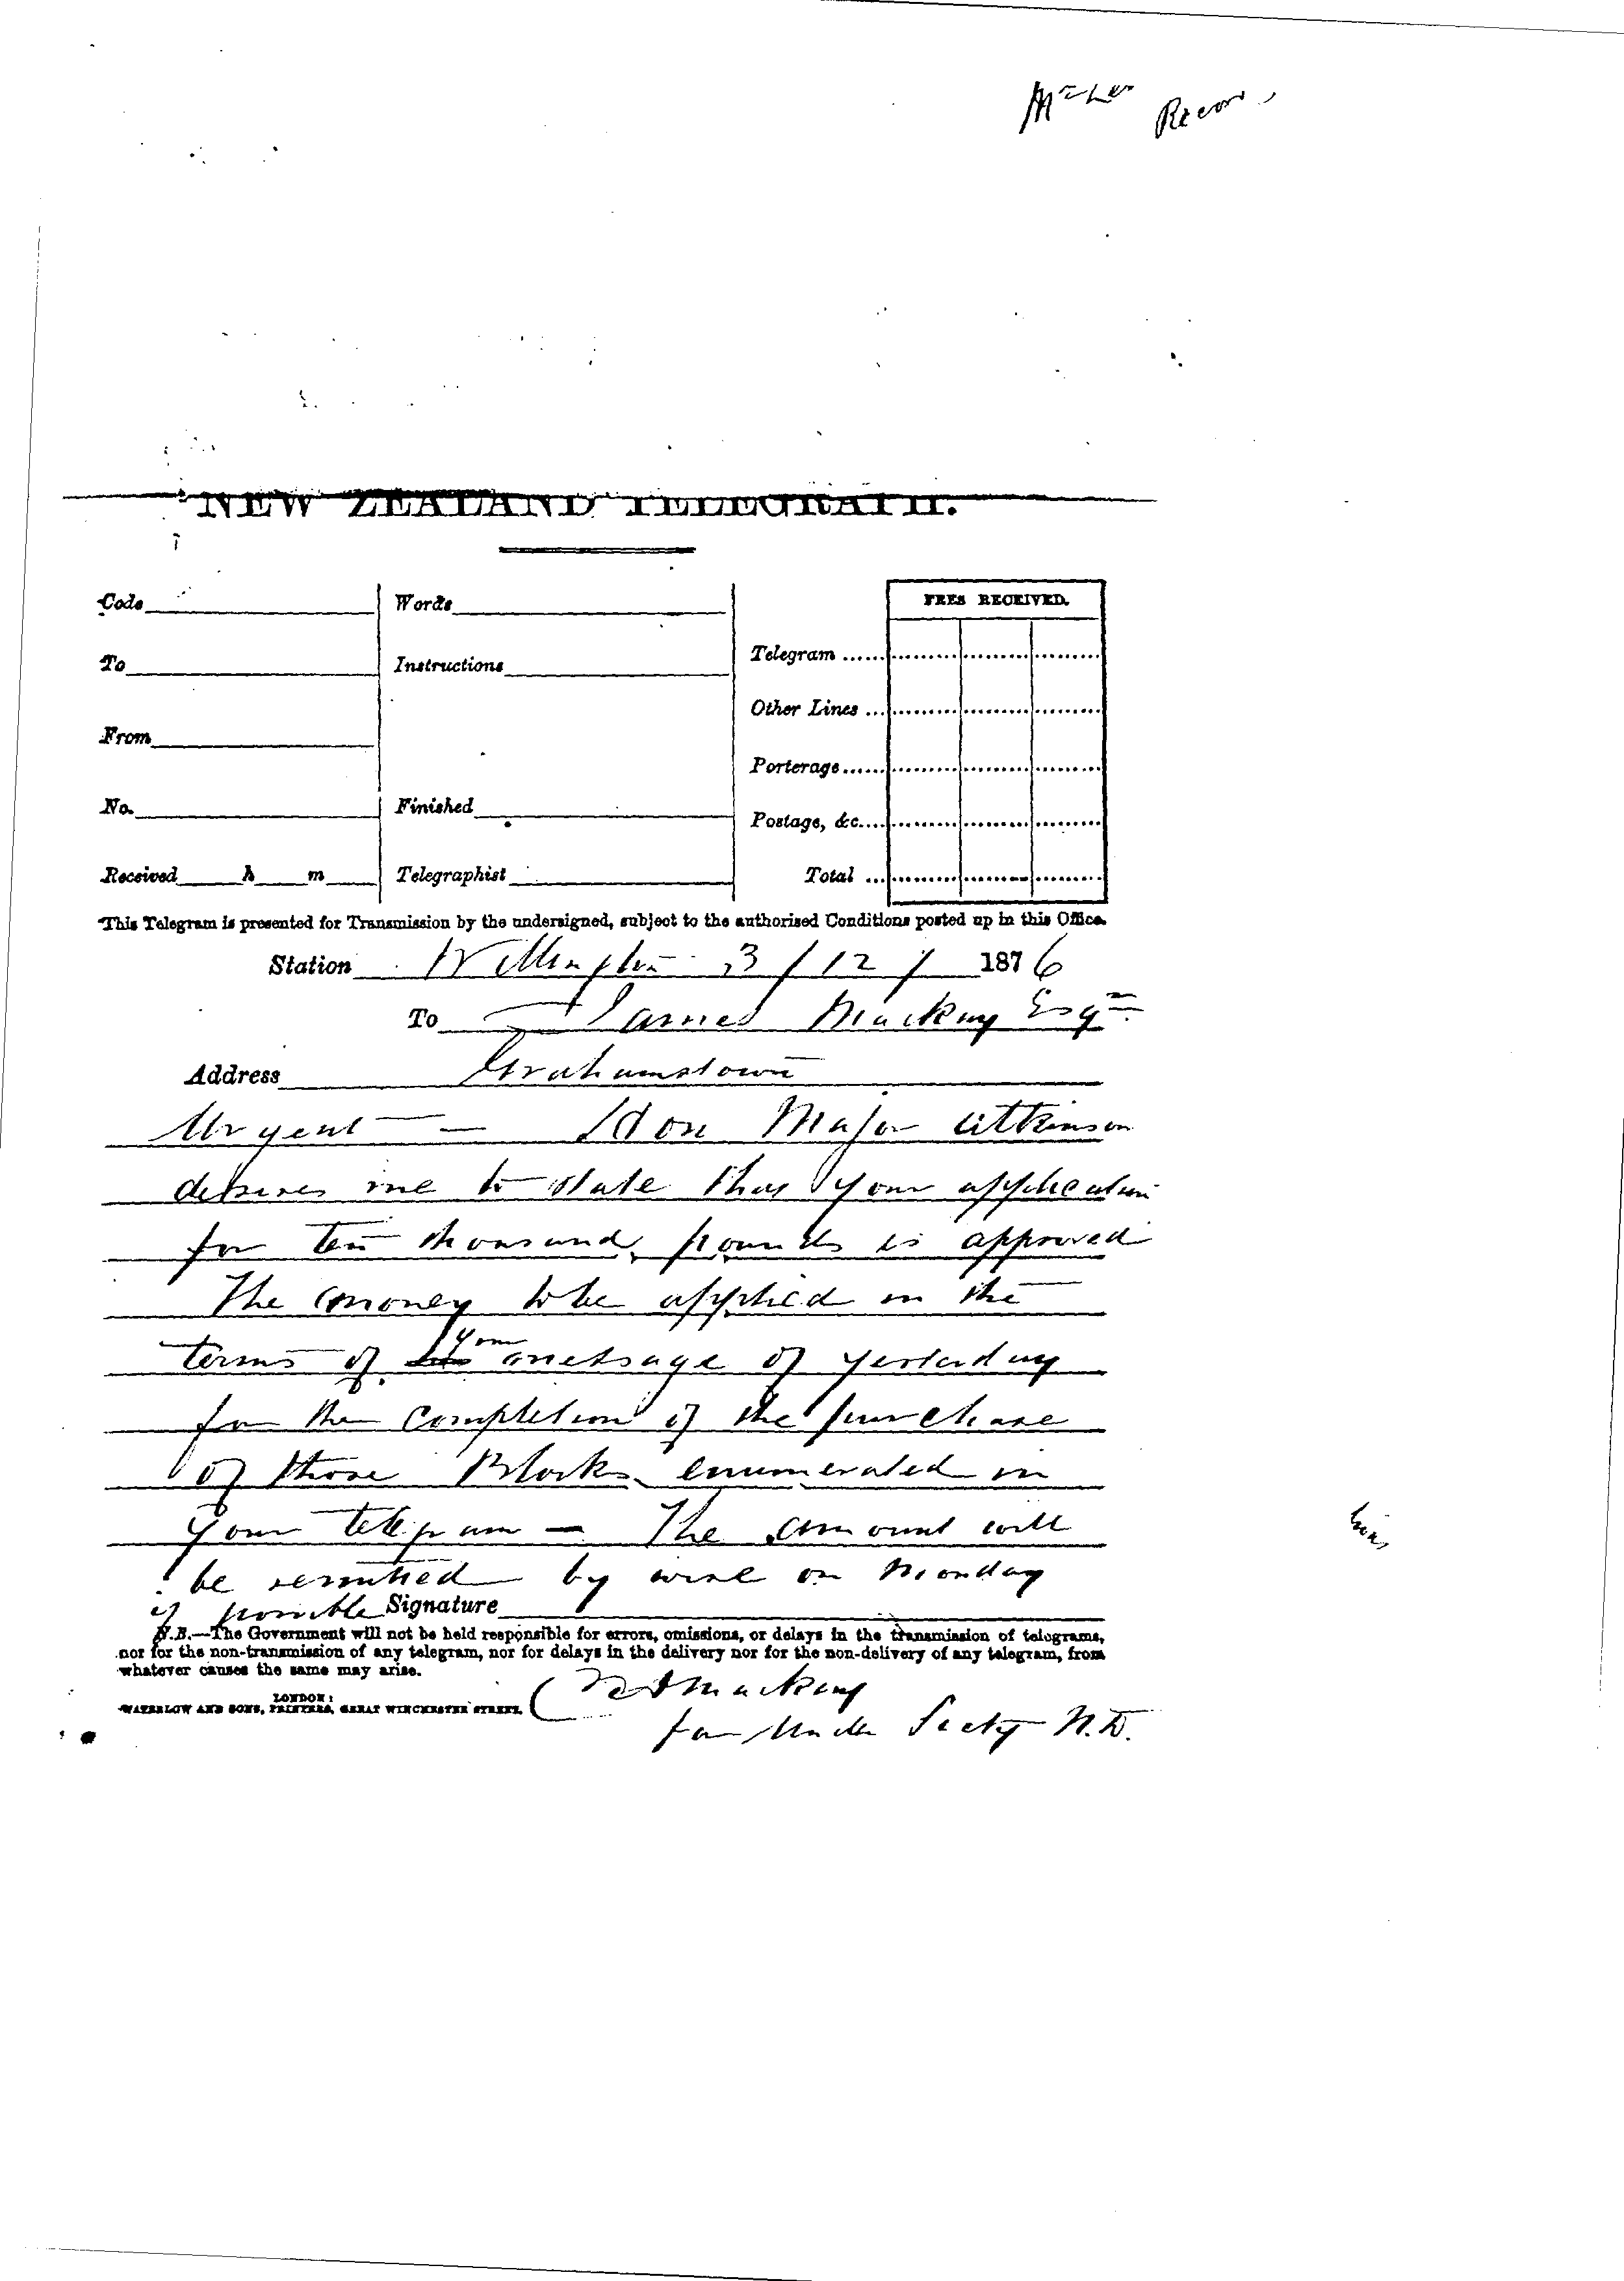 NEW ZEALAND TELEGRAPH.
FEES RECEIVED.
Code Words
To Instructions Telegram ......
Other Lines ...
From
Porterage......
No. Finished
Postage, &c....
Received h m Telegraphist Total ...
This Telegram is presented for Transmission by the undersigned, subject to the authorised Conditions posted up in this Office.
Station Wellington 3 / 12 / 1876
To James Mackay Esqre
Address Grahamstown
Urgent — Hon Major Atkinson
desires me to state that your application
for ten thousand pounds is approved
The money to be applied in the
your
terms of message of yesterday
for the completion of the purchase
of those Blocks enumerated in
your telegram — The amount will
be remitted by wire on Monday
if possible Signature
N.B.—The Government will not be held responsible for errors, omissions, or delays in the transmission of telegrams,
nor for the non-transmission of any telegram, nor for delays in the delivery nor for the non-delivery of any telegram, from
whatever causes the same may arise.
LONDON:
WATERLOW AND SONS, PRINTERS, GREAT WINCHESTER STREET.
Mackay
for Under Secty N.D.